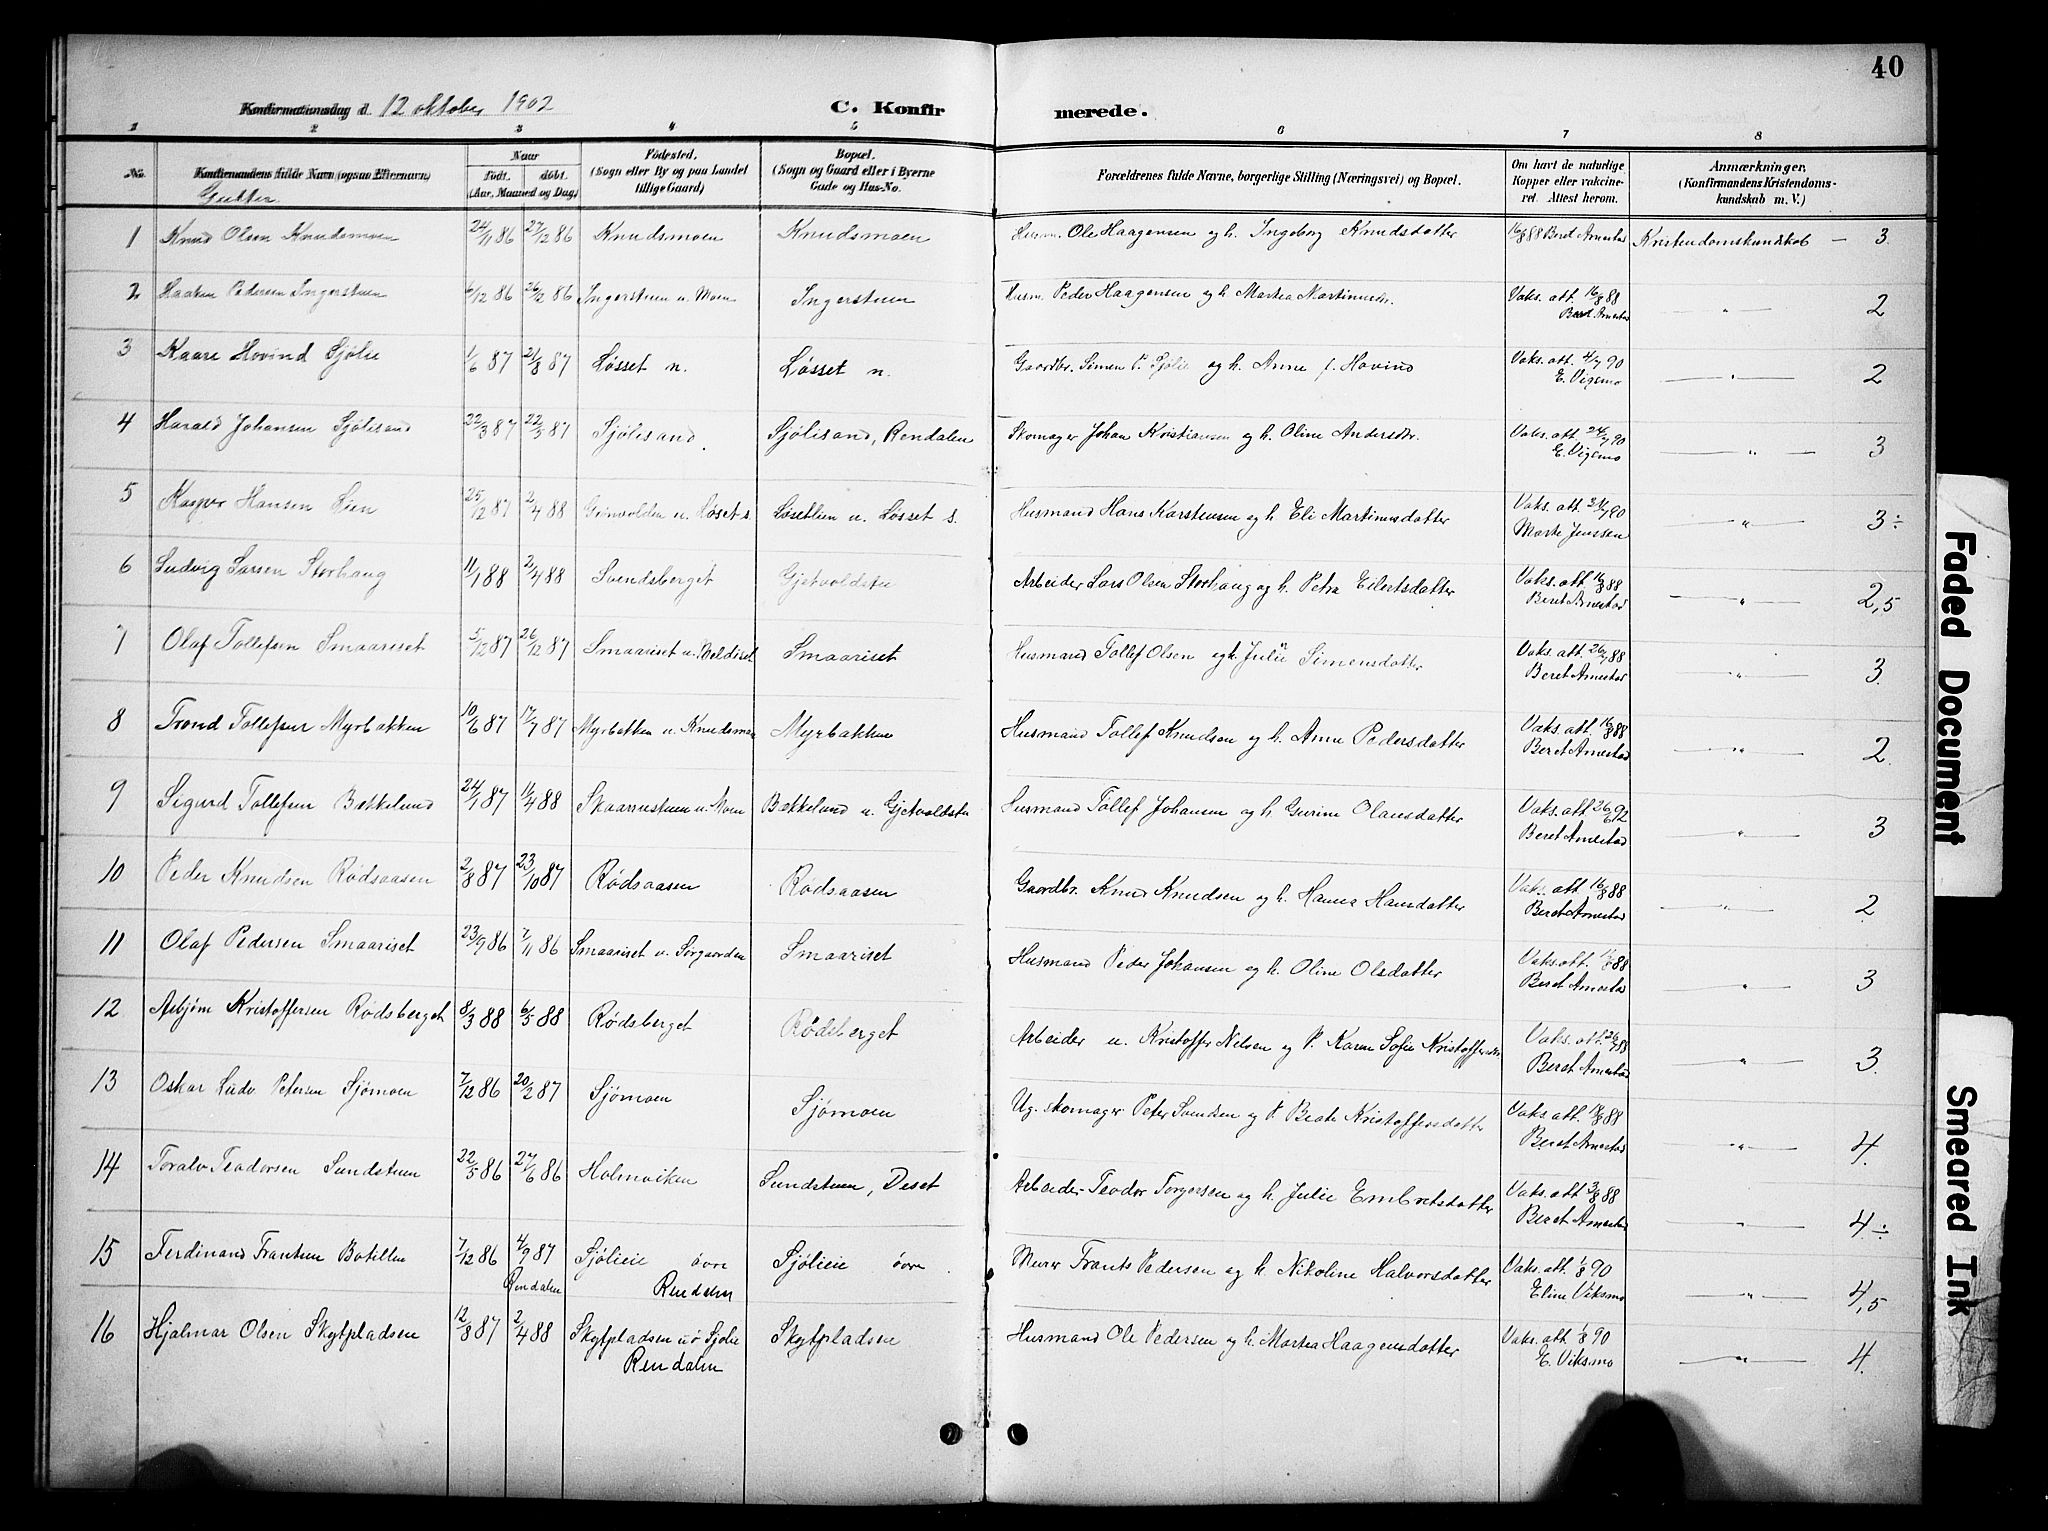 40
Konfirmationsdag d. 12 oktober 1902 C. Konfirmerede.
1 2 3 4 5 6 7 8
No. Konfirmandens fulde Navn (ogsaa Efternavn) Naar Født. døbt. (Aar, Maaned og Dag) Fødested. (Sogn eller By og paa Landet tillige Gaard) Bopæl. (Sogn og Gaard eller i Byerne Gade og Hus-No. Forældrenes fulde Navne, borgerlige Stilling (Næringsvei) og Bopæl. Om havt de naturlige Kopper eller vakcineret. Attest herom. Anmærkninger, (Konfirmandens Kristendomskundskab m. V.)
Gutter
1 Knud Olsen Knudsmoen 24/11 86 27/12 86 Knudsmoen Knudsmoen Husm. Ole Haagensen og h. Ingeborg Knudsdatter 16/8 88 Beret Arnestad Kristendomskundskab — 3.
2 Haaken Pedersen Ingerstuen 6/12 86 26/12 86 Ingerstuen u. Moen Ingerstuen Husm. Peder Haagensen og h. Martea Martinusdr. Vaks. att. 16/8 88 Beret Arnestad " 2
3 Kaare Hovind Sjølie 1/6 87 21/8 87 Løsset n. Løsset n. Gaardbr. Simen P. Sjølie og h. Anne f. Hovind Vaks. att. 4/7 90 E. Vigsmo " 2
4 Harald Johansen Sjølisand 22/3 87 22/5 87 Sjølisand. Sjølisand, Rendalen Skomager Johan Kristiansen og h. Oline Andersdtr. Vaks. att. 24/7 90 E. Vigsmo " 3
5 Kasper Hansen Lien 25/12 87 2/4 88 Grinvolden u. Løset s. Løsetlien u. Løsset s. Husmand Hans Karstensen og h. Eli Martinusdatter Vaks. att. 24/7 90 Marte Jenssen " 3÷
6 Ludvig Larsen Storhaug 11/1 88 2/4 88 Svendsberget Gjetvoldstu Arbeider Lars Olsen Storhaug og h. Petra Eilertsdatter Vaks. att. 16/8 88 Beret Arnestad " 2,5
7 Olaf Tollefsen Smaariset 5/12 87 26/12 87 Smaariset u. Beldiset Smaariset Husmand Tollef Olsen og h. Julie Simensdatter Vaks. att. 26/7 88 Beret Arnestad " 3.
8 Trond Tollefsen Myrbakken 10/6 87 17/7 87 Myrbakken u. Knudsmoe Myrbakken Husmand Tollef Knudsen og h. Anne Pedersdatter Vaks. att. 16/8 88 Beret Arnestad " 2.
9 Sigurd Tollefsen Bækkelund 24/1 87 11/4 88 Skaarnstuen u. Moen Bækkelund u. Gjetvoldstu Husmand Tollef Johansen og h. Gurine Olausdatter Vaks. att. 26/6 92 Beret Arnestad " 3
10 Peder Knudsen Rødsaasen 2/8 87 23/10 87 Rødsaasen Rødsaasen Gaardbr. Knud Knudsen og h. Hanna Hansdatter Vaks. att. 16/8 88 Beret Arnestad " 2
11 Olaf Pedersen Smaariset 23/9 86 7/11 86 Smaariset u. Sørgaarden Smaariset Husmand Peder Johansen og h. Oline Olsdatter Vaks. att. 88 Beret Arnestad " 3
12 Asbjørn Kristoffersen Rødsberget 8/3 88 6/5 88 Rødsberget Rødsberget Arbeider u. Kristoffer Nilsen og P. Karen Sofie Kristoffersdtr Vaks. att. 26/7 88 Beret Arnestad " 3.
13 Oskar Ludv. Petersen Sjømoen 7/12 86 20/2 87 Sjømoen Sjømoen Ug. skomager Peter Svendsen og P. Beate Kristoffersdatter Vaks. att. 88 Beret Arnestad " 4.
14 Toralv Teodorsen Sundstuen 22/5 86 27/6 86 Holmviken Sundstuen, Deset Arbeider Teodor Torgersen og h. Julie Embretsdatter Vaks. att. 3/8 88 Beret Arnestad " 4÷
15 Ferdinand Frantsen Botillen 7/12 86 4/9 87 Rendalen Sjølieie øvre Rendalen Sjølieie øvre Murer Frants Pedersen og h. Nikoline Halvorsdatter Vaks. att. 1/8 90 Eline Viksmo " 4,5
16 Hjalmar Olsen Skytpladsen 12/8 87 2/4 88 Skytpladsen u ø Sjølie Rendalen Skytpladsen Husmand Ole Pedersen og h. Martea Haagensdatter Vaks. att. 1/8 90 E. Viksmo " 4.
Faded Document
Smeared Ink